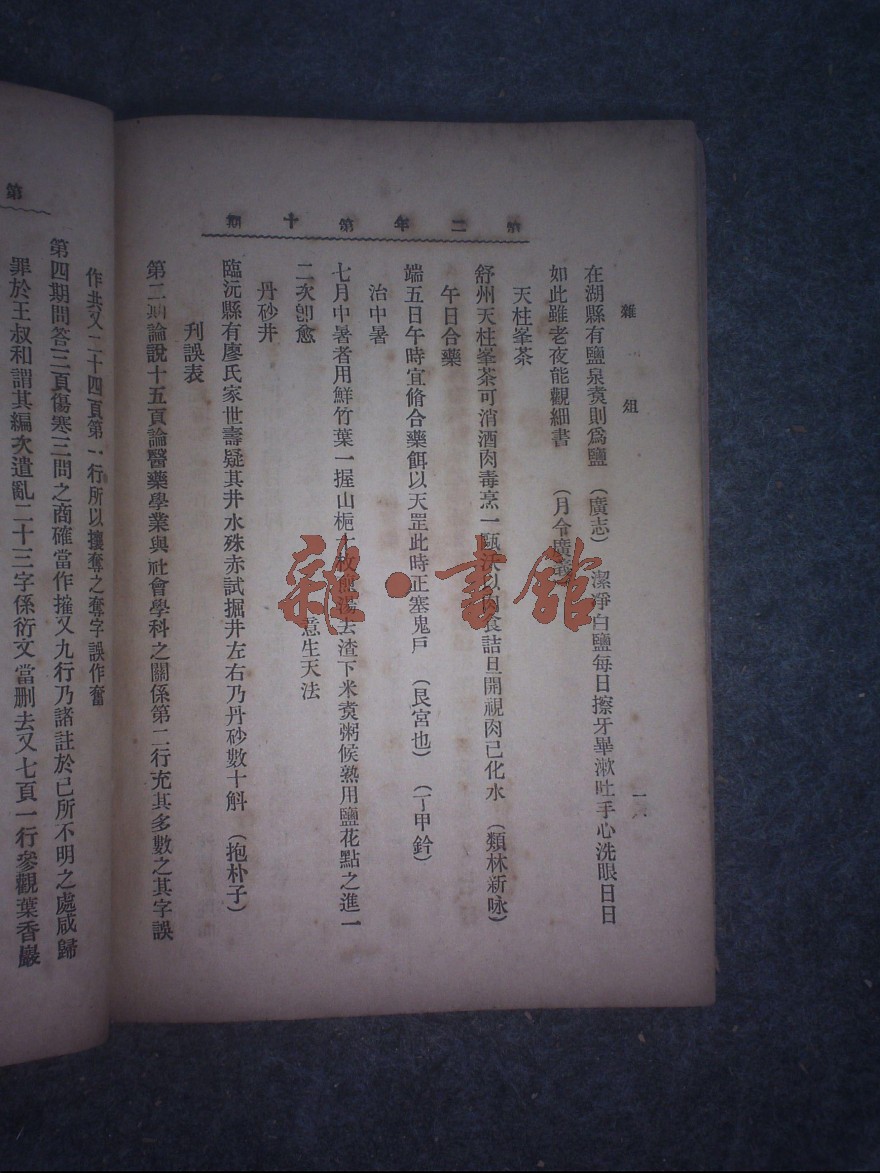 雜俎
在湖縣有鹽泉煑則爲鹽 (廣志) 潔凈白鹽每日擦牙畢漱吐手心洗眼日日
如此雖老夜能觀細書 (月令廣義)
天柱峯茶
舒州天柱峯茶可消酒肉毒烹一甌沃以肉食詰旦開視肉已化水 (類林新咏)
午日合藥
端五日午時宜脩合藥餌以天罡此時正塞鬼戶 (艮宮也) 甲鈐)
治中暑
七月中暑者用鮮竹葉一握山梔 枚煎湯去渣下米煑粥候熟用鹽花點之進一
二次卽愈 意生天法
丹砂井
臨沅縣有廖氏家世壽疑其井水殊赤試掘井左右乃丹砂數十斛 (抱朴子)
刋誤表
第二期論說十五頁論醫藥學業與社會學科之關係第二行充其多數之其字誤
第二年第十期
作共又二十四頁第一行所以攘奪之奪字誤作奮
第四期問答三頁傷寒三問之商確當作搉又九行乃諸註於己所不明之處咸歸
罪於王叔和謂其編次遺亂二十三字係衍文當删去又七頁一行參觀葉香巖
第
雜·書館